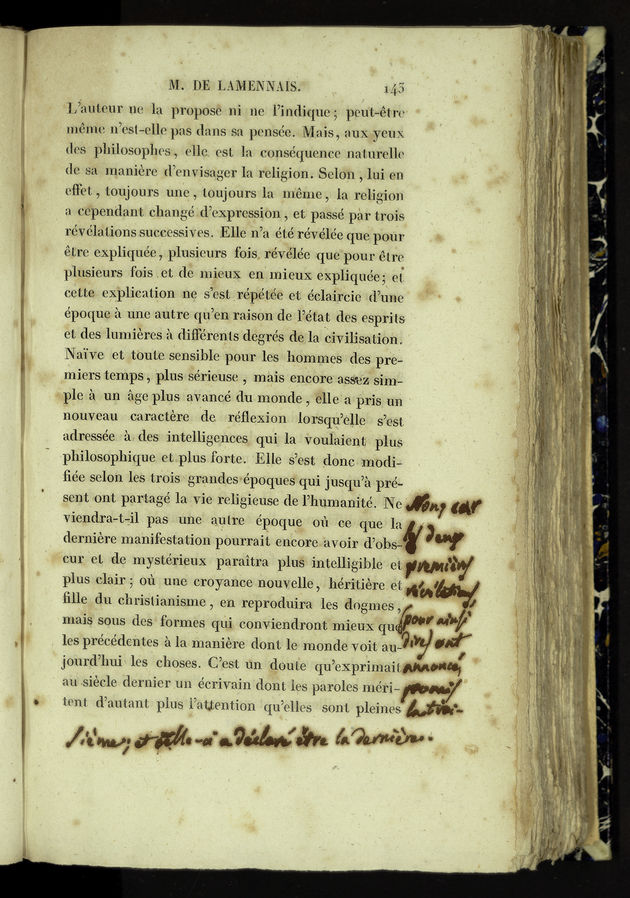 M. DE LAMENNAIS. 143
L'auteur ne la propose ni ne l'indique ; peut-être
même n'est-elle pas dans sa pensée. Mais, aux yeux
des philosophes, elle est la conséquence naturelle
de sa manière d'envisager la religion. Selon, lui en
effet, toujours une, toujours la même, la religion
a cependant changé d'expression, et passé par trois
révélations successives. Elle n'a été révélée que pour
être expliquée, plusieurs fois révélée que pour être
plusieurs fois et de mieux en mieux expliquée; et
cette explication ne s'est répétée et éclaircie d'une
époque à une autre qu'en raison de l'état des esprits
et des lumières à différents degrés de la civilisation.
Naïve et toute sensible pour les hommes des pre-
miers temps, plus sérieuse, mais encore assez sim-
ple à un âge plus avancé du monde, elle a pris un
nouveau caractère de réflexion lorsqu'elle s'est
adressée à des intelligences qui la voulaient plus
philosophique et plus forte. Elle s'est donc modi-
fiée selon les trois grandes époques qui jusqu'à pré-
sent ont partagé la vie religieuse de l'humanité. Ne
viendra-t-il pas une autre époque où ce que la
dernière manifestation pourrait encore avoir d'obs-
cur et de mystérieux paraîtra plus intelligible et
plus clair ; où une croyance nouvelle, héritière et
fille du christianisme, en reproduira les dogmes,
mais sous des formes qui conviendront mieux que
les précédentes à la manière dont le monde voit au-
jourd'hui les choses. C'est un doute qu'exprimait
au siècle dernier un écrivain dont les paroles méri-
tent d'autant plus l'attention qu'elles sont pleines
Non, car
les deux
premières
révélations
(pour ainsi
dire) ont
annoncé,
promis
la troi-
sième; et celle-ci a déclaré être la dernière.